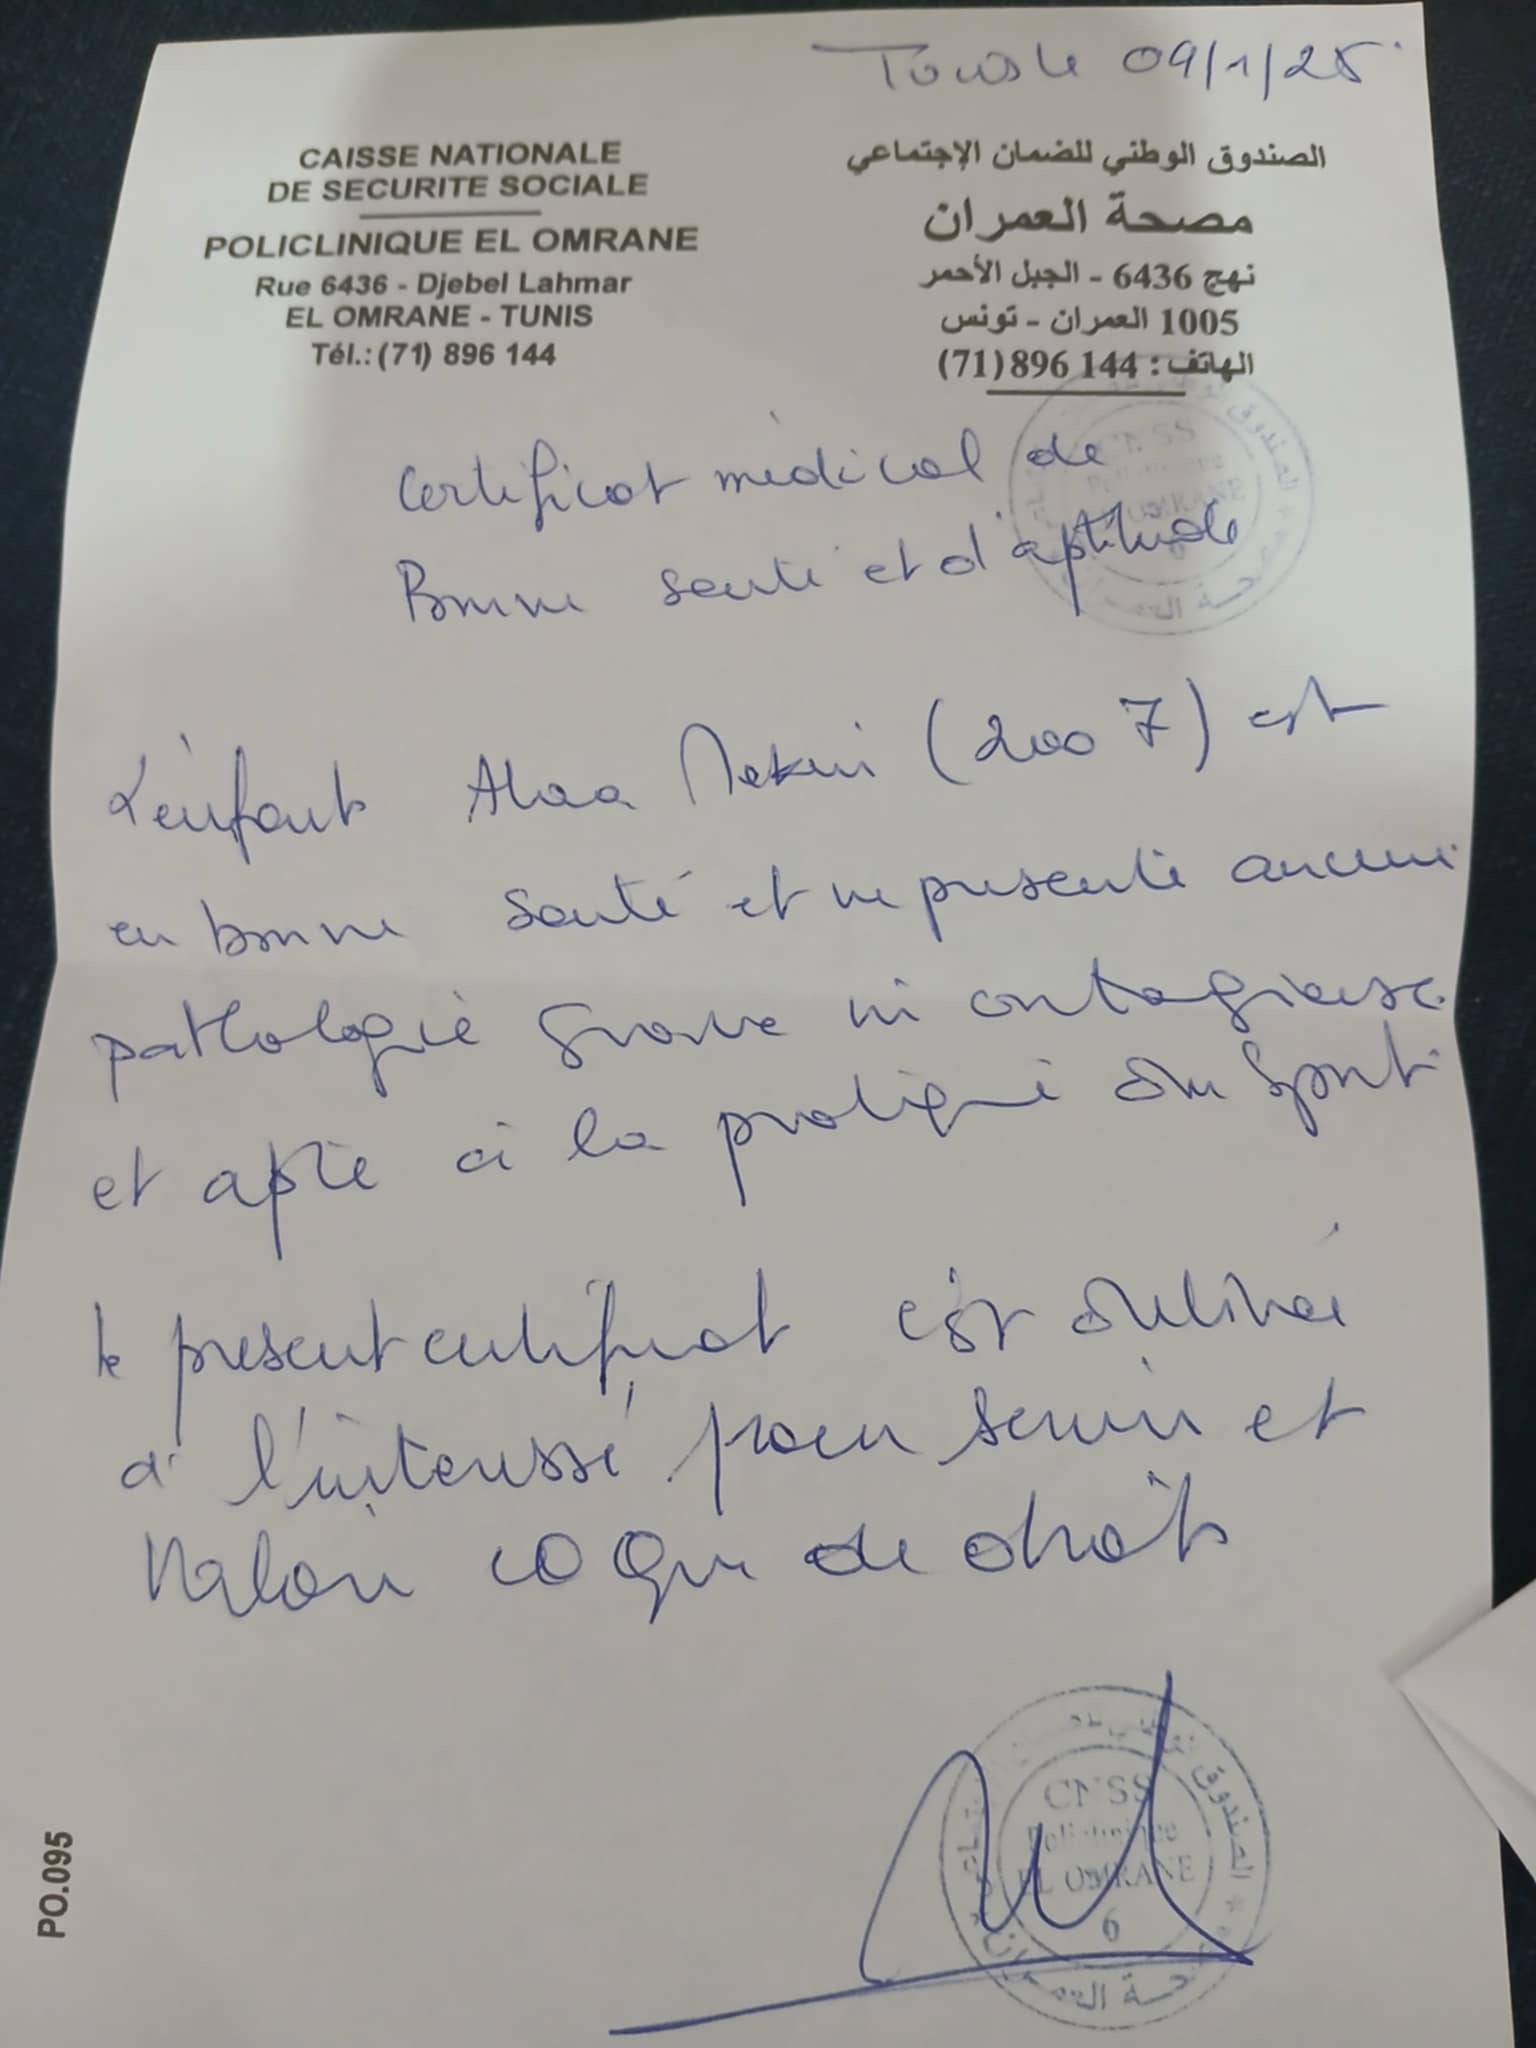 Tunis le 09/1/25
CAISSE NATIONALE
DE SECURITE SOCIALE
POLICLINIQUE EL OMRANE
Rue 6436 - Djebel Lahmar
EL OMRANE - TUNIS
Tél.: (71) 896 144
الصندوق الوطني للضمان الإجتماعي
مصحة العمران
نهج 6436 - الجبل الأحمر
1005 العمران - تونس
الهاتف : 144 896(71)
Certificat médical de
Bonne santé et d'aptitude
L'enfant Alaa (2007) est
en bonne santé et ne présente aucune
pathologie grave ni contagieuse
et apte à la pratique du sport
le présent certificat est délivré
à l'intéressé pour servir et
valoir ce que de droit
CNSS
Policlinique
EL OMRANE
6
PO.095